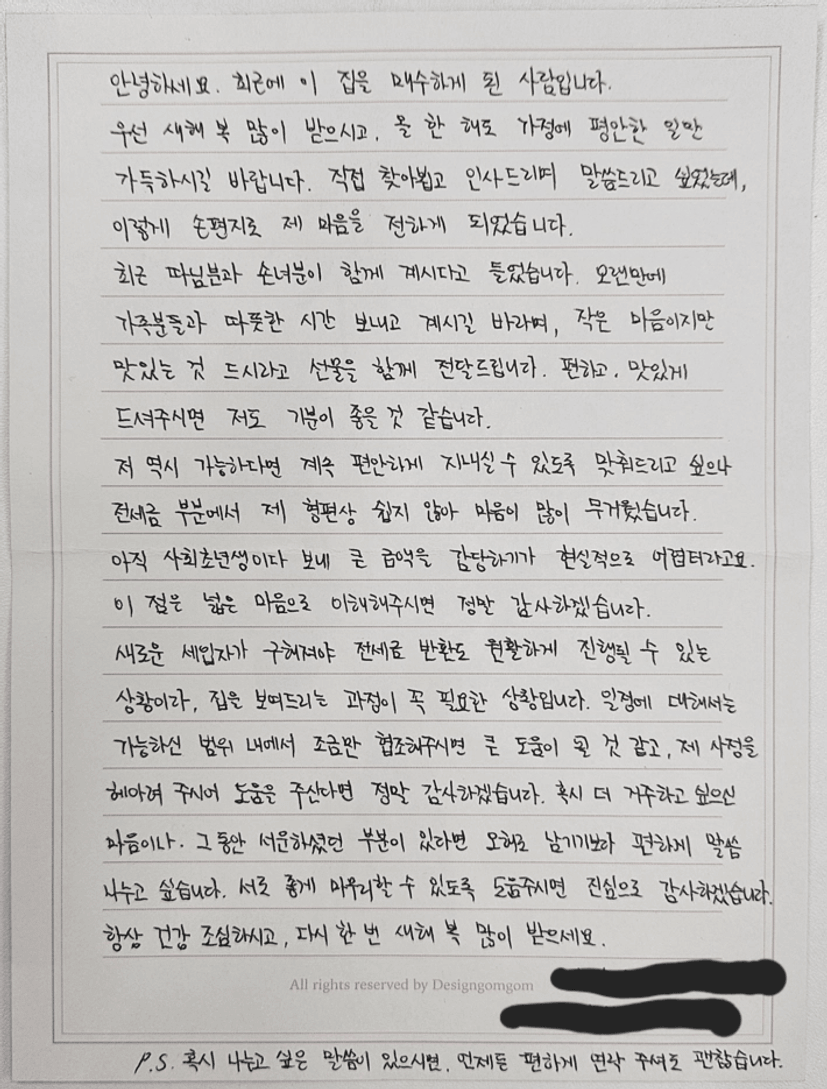 안녕하세요. 최근에 이 집을 매수하게 된 사람입니다.
우선 새해 복 많이 받으시고, 올 한 해도 가정에 평안한 일만
가득하시길 바랍니다. 직접 찾아뵙고 인사드리며 말씀드리고 싶었는데,
이렇게 손편지로 제 마음을 전하게 되었습니다.
최근 따님분과 손녀분이 함께 계시다고 들었습니다. 오랜만에
가족분들과 따뜻한 시간 보내고 계시길 바라며, 작은 마음이지만
맛있는 것 드시라고 선물을 함께 전달드립니다. 편하고, 맛있게
드셔주시면 저도 기분이 좋을 것 같습니다.
저 역시 가능하다면 계속 편안하게 지내실 수 있도록 맞춰드리고 싶으나
전세금 부분에서 제 형편상 쉽지 않아 마음이 많이 무거웠습니다.
아직 사회초년생이다 보네 큰 금액을 감당하기가 현실적으로 어렵터라고요.
이 점은 넓은 마음으로 이해해주시면 정말 감사하겠습니다.
새로운 세입자가 구해져야 전세금 반환도 원활하게 진행될 수 있는
상황이라, 집을 보여드리는 과정이 꼭 필요한 상황입니다. 일정에 대해서는
가능하신 범위 내에서 조금만 협조해주시면 큰 도움이 될 것 같고, 제 사정을
헤아려 주시어 도움을 주신다면 정말 감사하겠습니다. 혹시 더 거주하고 싶으신
마음이나. 그동안 서운하셨던 부분이 있다면 오해로 남기기보다 편하게 말씀
나누고 싶습니다. 서로 좋게 마무리할 수 있도록 도움주시면 진심으로 감사하겠습니다.
항상 건강 조심하시고, 다시 한 번 새해 복 많이 받으세요.
All rights reserved by Designgomgom
P.S. 혹시 나누고 싶은 말씀이 있으시면, 언제든 편하게 연락 주셔도 괜찮습니다.